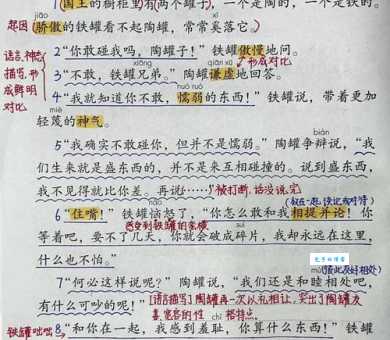 1国王的橱柜里有两个罐子,一个是陶的,一个是铁的。
jiāo
xī
起因
骄傲的铁罐看不起陶罐,常常奚落它。
语言、神态描写,形成鲜明对比
2“你敢碰我吗,陶罐子!”铁罐傲慢地问。
形成对比
xiōng
qiān xū
3“不敢,铁罐兄弟。”陶罐谦虚地回答。
nuò ruò
4“我就知道你不敢,懦弱的东西!”铁罐说,带着更加
miè
轻蔑的神气。
biàn
5“我确实不敢碰你,但并不是懦弱。”陶罐争辩说,“我
们生来就是盛东西的,并不是来互相碰撞的。说到盛东西,
我不见得就比你差。再说……”
被打断,话没说完
nǎo
6“住嘴!”铁罐恼怒了,“你怎么敢和我相提并论!你
suì
等着吧,要不了几天,你就会破成碎片,我却永远在这里,
什么也不怕。”
mù
(彼此友好相处)
7“何必这样说呢?”陶罐说,“我们还是和睦相处吧,
有什么可吵的呢!”
[语言描写]陶罐再一次以礼相让,突出了陶罐友善、宽容的性格特点。
chǐ
铁罐咄咄
8“和你在一起,我感到羞耻,你算什么东西!”铁罐